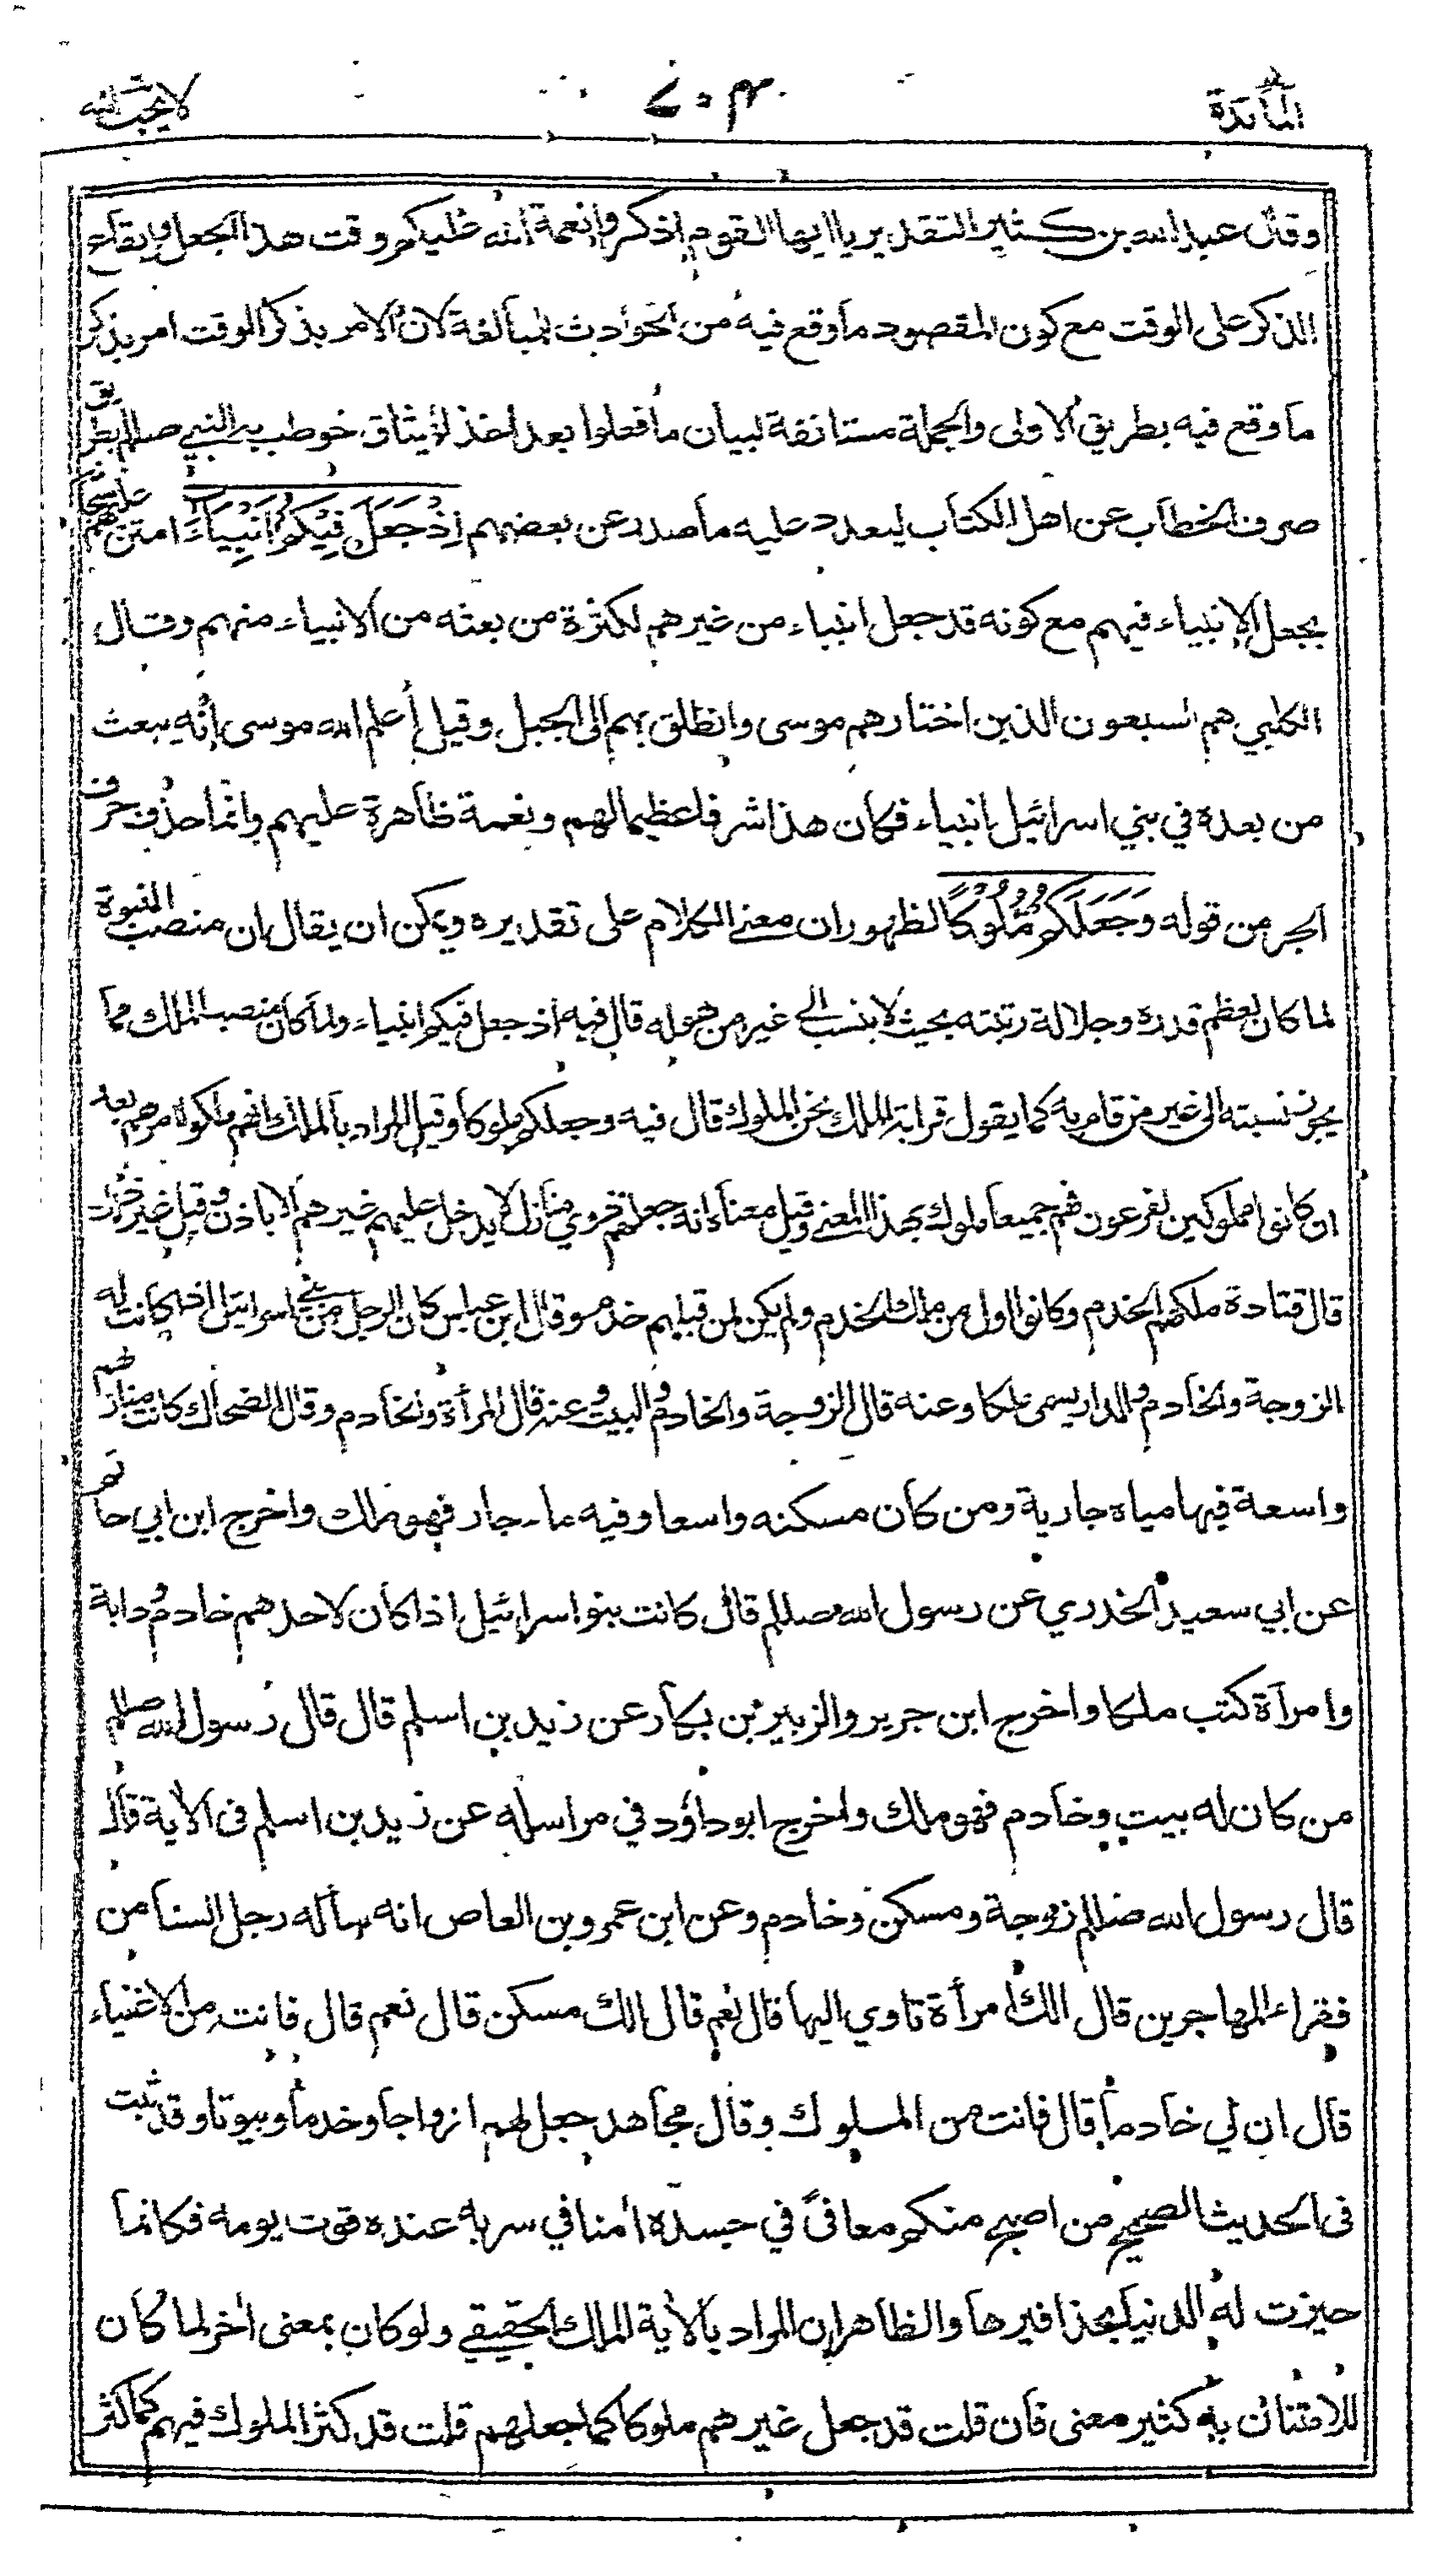 المآئدة ٧٠٣ لا يحب الله
وقال عبد الله بن كثير التقدير يا ايها القوم اذكروا نعمة الله عليكم وقت هذا الجعل وايقاع
الذكر على الوقت مع كون المقصود ما وقع فيه من الحوادث للمبالغة لان الامر بذكر الوقت امر بذكر
ما وقع فيه بطريق الاولى والجملة مستانفة لبيان ما فعلوا بعد اخذ الميثاق خوطب به النبي صللم بطريق
صرف الخطاب عن اهل الكتاب ليعدد عليه ما صدر عن بعضهم اِذْ جَعَلَ فِيْكُمْ اَنْبِيَآءَ امتن عليهم سبحانه
بجعل الانبياء فيهم مع كونه قد جعل انبياء من غيرهم لكثرة من بعثه من الانبياء منهم وقال
الكلبي هم السبعون الذين اختارهم موسى وانطلق بهم الى الجبل وقيل أعلم الله موسى انه يبعث
من بعده في بني اسرائيل انبياء فكان هذا شرفا عظيما لهم ونعمة ظاهرة عليهم وانما حذف حرف
الجر من قوله وَجَعَلَكُمْ مُّلُوْكًا لظهور ان معنى الكلام على تقديره ويمكن ان يقال ان منصب النبوة
لما كان لعظم قدره وجلالة رتبته بحيث لا ينسب الى غير من هو له قال فيه اذ جعل فيكم انبياء ولما كان منصب الملك مما
يجوز نسبته الى غير من قام به كما يقول قرابة الملك نحن الملوك قال فيه وجعلكم ملوكا وقيل المراد بالملك انهم ملكوا امرهم بعد
ان كانوا مملوكين لفرعون فهم جميعا ملوك بهذا المعنى وقيل معناه انه جعلهم ذوي منازل لا يدخل عليهم غيرهم الا باذن وقيل غير ذلك
قال قتادة ملكهم الخدم وكانوا اول من ملك الخدم ولم يكن لمن قبلهم خدم وقال ابن عباس كان الرجل من بني اسرائيل اذا كانت له
الزوجة والخادم والدار يسمى ملكا وعنه قال الزوجة والخادم والبيت وعنه قال المرأة والخادم وقال الضحاك كانت منازلهم
واسعة فيها مياه جارية ومن كان مسكنه واسعا وفيه ماء جار فهو ملك واخرج ابن ابي حاتم
عن ابي سعيد الخدري عن رسول الله صللم قال كانت بنو اسرائيل اذا كان لاحدهم خادم ودابة
وامرأة كتب ملكا واخرج ابن جرير والزبير بن بكار عن زيد بن اسلم قال قال رسول الله صللم
من كان له بيت وخادم فهو ملك واخرج ابو داؤد في مراسله عن زيد بن اسلم فى الاية قال
قال رسول الله صللم زوجة ومسكن وخادم وعن ابن عمرو بن العاص انه سأله رجل السنا من
فقراء المهاجرين قال الك امرأة تاوي اليها قال نعم قال الك مسكن قال نعم قال فانت من الاغنياء
قال ان لي خادما قال فانت من الملوك وقال مجاهد جعل لهم ازواجا وخدما وبيوتا وقد ثبت
فى الحديث الصحيح من اصبح منكم معافىً في جسده اٰمنا في سربه عنده قوت يومه فكانما
حيزت له الدنيا بحذافيرها والظاهر ان المراد بالاية الملك الحقيقي ولو كان بمعنى اٰخر لما كان
للامتنان به كثير معنى فان قلت قد جعل غيرهم ملوكا كما جعلهم قلت قد كثر الملوك فيهم كما كثر